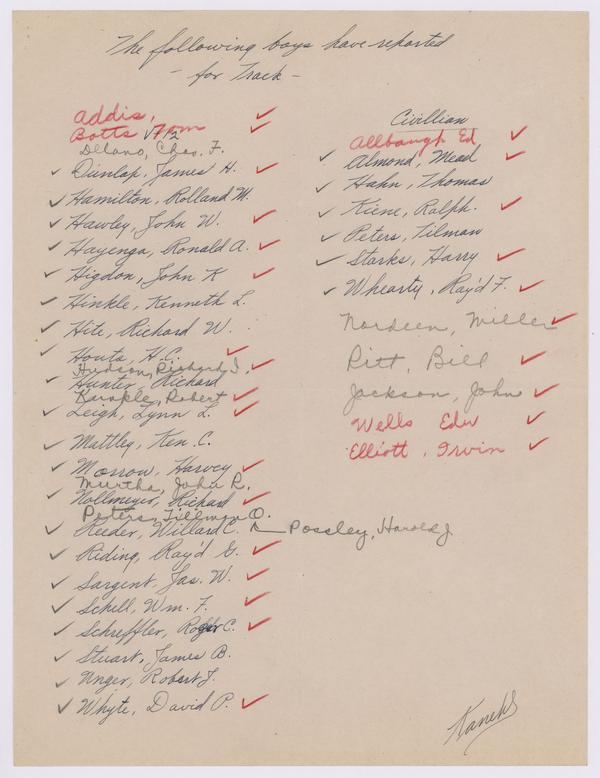 The following boys have reported
- for Track -
Addis,
Botts V712
Delano, Chas. F.
Dunlap, James H.
Hamilton, Rolland M.
Hawley, John W.
Hayenga, Ronald A.
Higdon, John K
Hinkle, Kenneth L.
Hite, Richard W.
Houts, H.C.
Hudson, Richard I.
Hunter, Richard
Kunkle, Robert
Leigh, Lynn L.
Mattley, Ken C.
Morrow, Harvey
Murtha, John R.
Nollmeyer, Richard
Peters, Tillman O.
Reeder, Willard C. Possley, Harold J
Riding, Ray'd G.
Sargent, Jas. W.
Schell, Wm. F.
Schreffler, Roger C.
Stuart, James B.
Unger, Robert J.
Whyte, David P.
Civillian
Allbaugh Ed
Almond, Mead
Hahn, Thomas
Kiene, Ralph.
Peters, Tilman
Starks, Harry
Whearty, Ray'd F.
Nordeen, Miller
Pitt, Bill
Jackson, John
Wells Edw
Elliott, Irvin